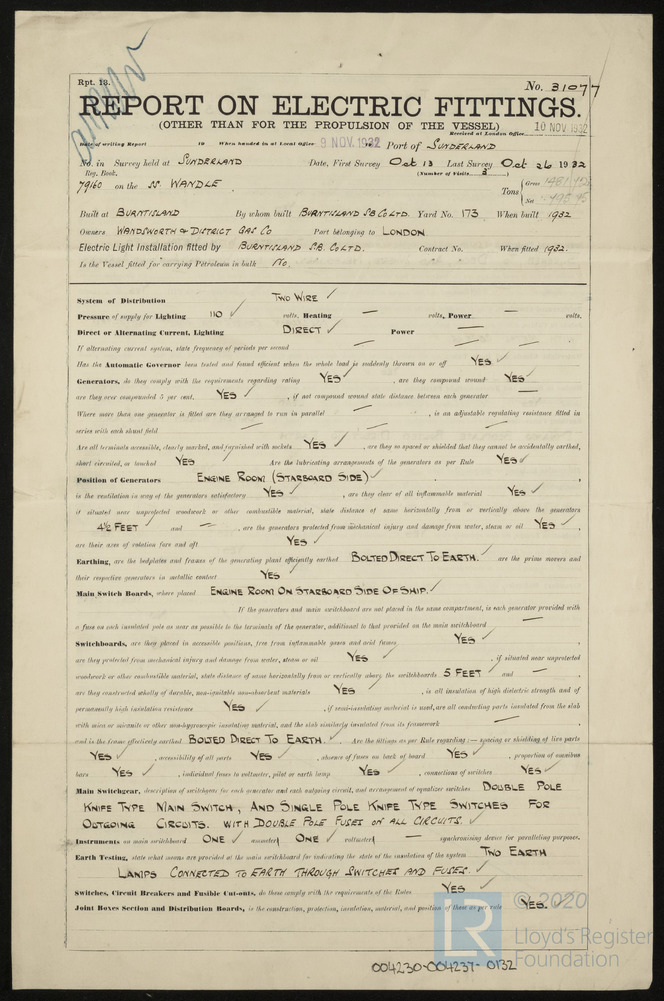 Rpt. 13.
No. 31077
REPORT ON ELECTRIC FITTINGS.
(OTHER THAN FOR THE PROPULSION OF THE VESSEL)
Received at London Office 10 NOV 1932
Date of writing Report 19 When handed in at Local Office 9 NOV. 1932 Port of SUNDERLAND
No. in Survey held at SUNDERLAND Date, First Survey Oct 13 Last Survey Oct 26 1932
Reg. Book. (Number of Visits 3)
79160 on the SS. WANDLE Tons { Gross
Net
Built at BURNTISLAND By whom built BURNTISLAND SB CO LTD. Yard No. 173 When built 1932
Owners WANDSWORTH & DISTRICT GAS CO Port belonging to LONDON
Electric Light Installation fitted by BURNTISLAND S.B. CO LTD. Contract No. When fitted 1932.
Is the Vessel fitted for carrying Petroleum in bulk No.
System of Distribution TWO WIRE ✓
Pressure of supply for Lighting 110 ✓ volts, Heating — volts, Power — volts.
Direct or Alternating Current, Lighting DIRECT ✓ Power —
If alternating current system, state frequency of periods per second — — —
Has the Automatic Governor been tested and found efficient when the whole load is suddenly thrown on or off YES ✓
Generators, do they comply with the requirements regarding rating YES ✓, are they compound wound YES ✓
are they over compounded 5 per cent. YES ✓, if not compound wound state distance between each generator —
Where more than one generator is fitted are they arranged to run in parallel —, is an adjustable regulating resistance fitted in
series with each shunt field — — —
Are all terminals accessible, clearly marked, and furnished with sockets YES ✓, are they so spaced or shielded that they cannot be accidentally earthed,
short circuited, or touched YES Are the lubricating arrangements of the generators as per Rule YES ✓
Position of Generators ENGINE ROOM (STARBOARD SIDE) ✓
is the ventilation in way of the generators satisfactory YES ✓, are they clear of all inflammable material YES ✓
if situated near unprotected woodwork or other combustible material, state distance of same horizontally from or vertically above the generators
4½ FEET and —, are the generators protected from mechanical injury and damage from water, steam or oil YES ✓,
are their axes of rotation fore and aft YES ✓
Earthing, are the bedplates and frames of the generating plant efficiently earthed BOLTED DIRECT TO EARTH. ✓ are the prime movers and
their respective generators in metallic contact YES
Main Switch Boards, where placed ENGINE ROOM ON STARBOARD SIDE OF SHIP. ✓
If the generators and main switchboard are not placed in the same compartment, is each generator provided with
a fuse on each insulated pole as near as possible to the terminals of the generator, additional to that provided on the main switchboard —
Switchboards, are they placed in accessible positions, free from inflammable gases and acid fumes YES ✓,
are they protected from mechanical injury and damage from water, steam or oil YES ✓, if situated near unprotected
woodwork or other combustible material, state distance of same horizontally from or vertically above the switchboards 5 FEET ✓ and —,
are they constructed wholly of durable, non-ignitable non-absorbent materials YES ✓, is all insulation of high dielectric strength and of
permanently high insulation resistance YES ✓, if semi-insulating material is used, are all conducting parts insulated from the slab
with mica or micanite or other non-hygroscopic insulating material, and the slab similarly insulated from its framework —,
and is the frame effectively earthed BOLTED DIRECT TO EARTH. ✓ Are the fittings as per Rule regarding :— spacing or shielding of live parts
YES ✓, accessibility of all parts YES ✓, absence of fuses on back of board YES ✓, proportion of omnibus
bars YES ✓, individual fuses to voltmeter, pilot or earth lamp YES ✓, connections of switches YES ✓
Main Switchgear, description of switchgear for each generator and each outgoing circuit, and arrangement of equalizer switches DOUBLE POLE
KNIFE TYPE MAIN SWITCH, AND SINGLE POLE KNIFE TYPE SWITCHES FOR
OUTGOING CIRCUITS. WITH DOUBLE POLE FUSES ON ALL CIRCUITS. ✓
Instruments on main switchboard ONE ✓ ammeter ONE ✓ voltmeter — synchronising device for paralleling purposes.
Earth Testing, state what means are provided at the main switchboard for indicating the state of the insulation of the system TWO EARTH
LAMPS CONNECTED TO EARTH THROUGH SWITCHES AND FUSES. ✓
Switches, Circuit Breakers and Fusible Cut-outs, do these comply with the requirements of the Rules YES ✓
Joint Boxes Section and Distribution Boards, is the construction, protection, insulation, material, and position of these as per rule YES. ✓
© 2020
Lloyd's Register
Foundation
LR
004230-004237-0132